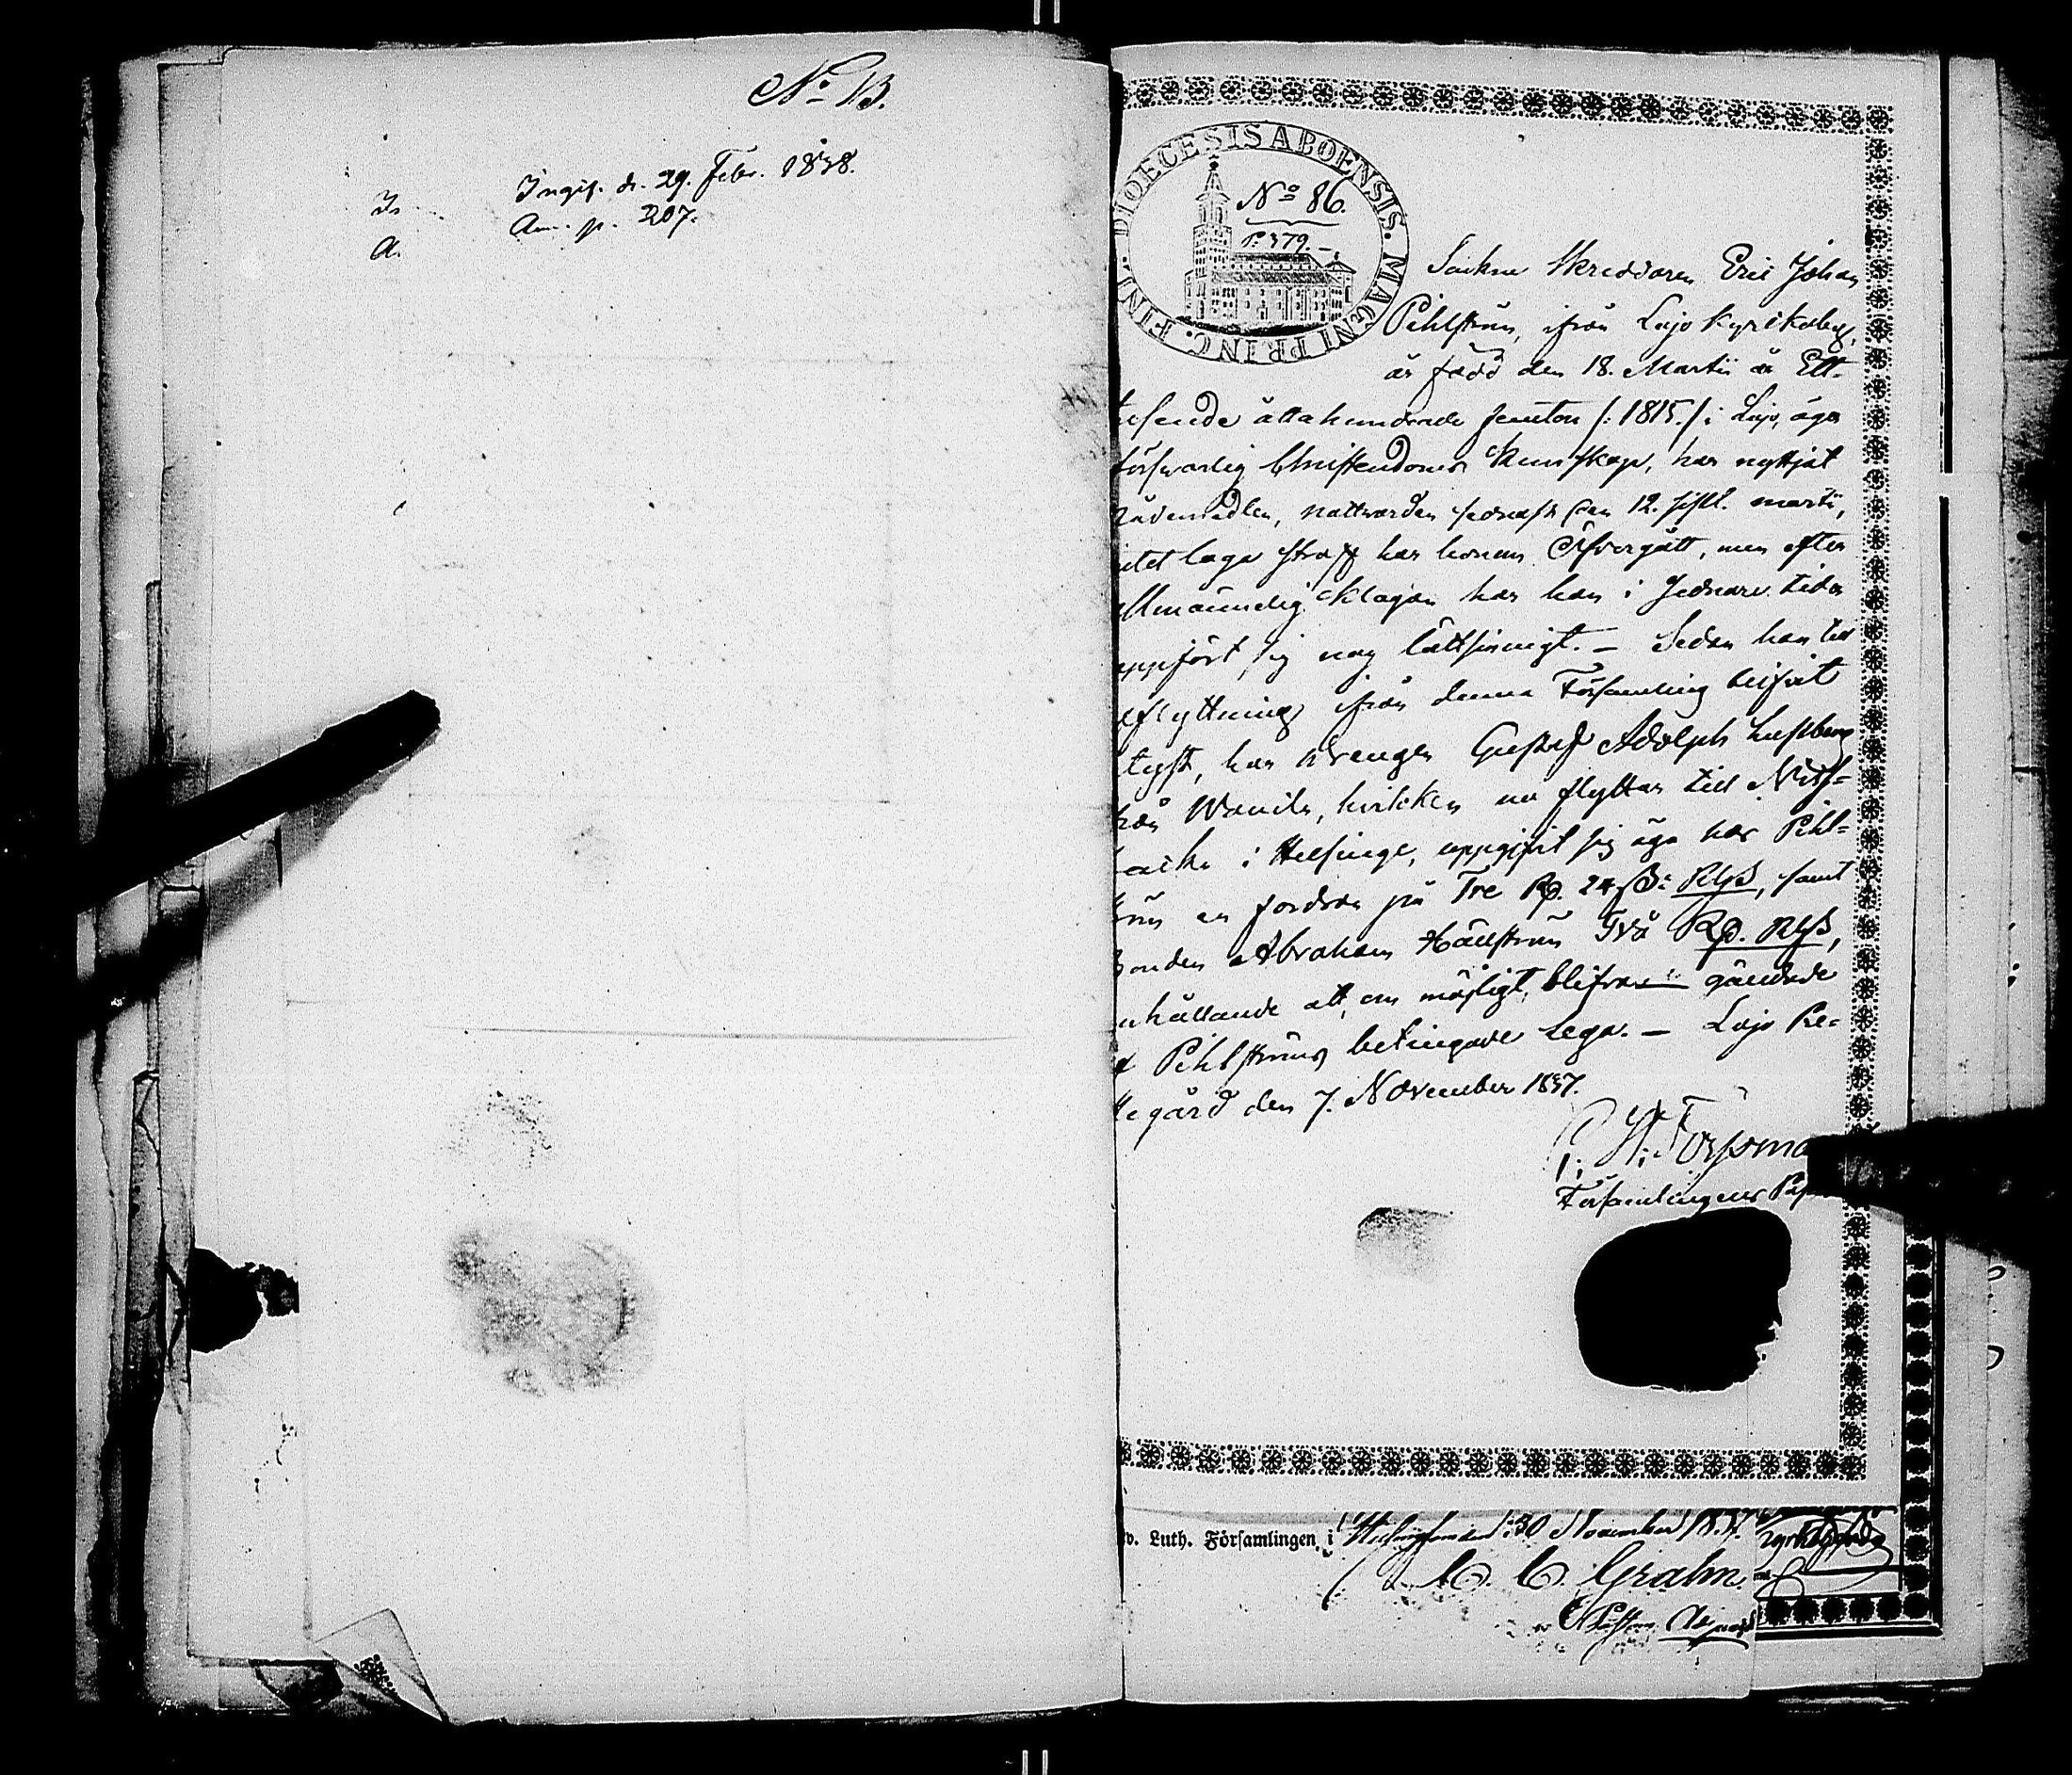 No 13.
Ingif. d. 29. Febr. 1838.
Ann. p. 207.
In
A.
DIOECESIS ABOENSIS. MAGNI PRINC. FINL.
No 86.
P. 379.
Socknes Skreddaren Eric Johan
Pihlström, ifrån Lojo Kyrkoby,
är född den 18. Martii år Ett-
tusende åttahundrade femton /: 1815./ i Lojo, äger
försvarlig Christendoms Kunskap, har nyttjat
nådemedlen, nattvarden sednast den 12. sistl. martii,
intet laga straff har honom Öfvergått, men efter
allmännelig klagan har han i sednare tider
uppfört sig nog lättsinnigt. – Sedan han till
afflyttning ifrån denna Församling blifvit
lyst, har drengen Gustaf Adolph Lustberg
från Wanda, hvilken nu flyttar till
backa i Helsinge, uppgifvit sig äga hos Pihl-
ström en fordran på Tre R. 24 ß: RgS, samt
Bonden Abraham Hällström Två R. RgS,
anhållande att, om möjligt, blifva gäldade
af Pihlströms betingade lega. – Lojo Pre-
stegård den 7. November 1837.
Forsman
Församlingens
v. Luth. Församlingen i Helsingfors d: 30 November 1837.
Grahn.